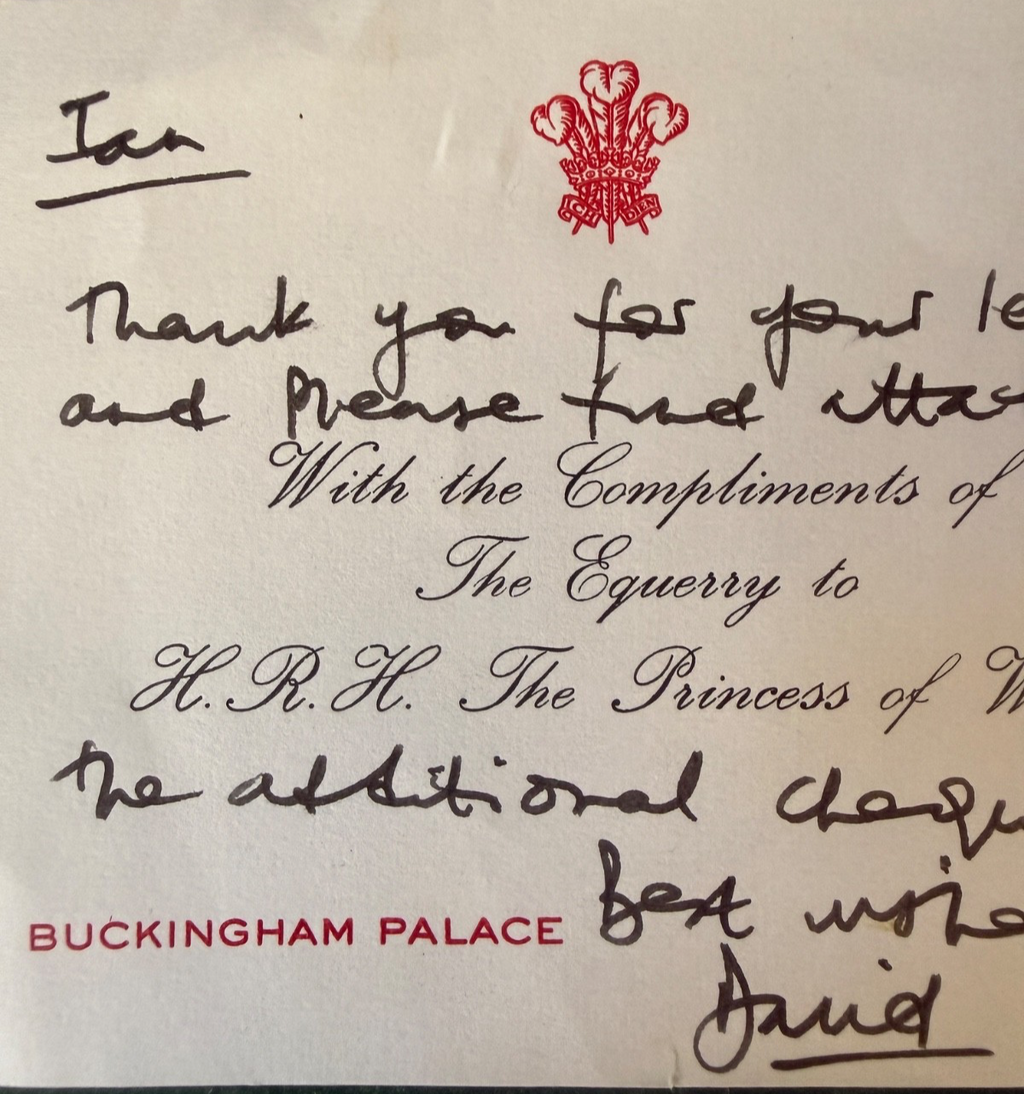 Ian
ICH DIEN
Thank you for your le
and please find attac
With the Compliments of
The Equerry to
H.R.H. The Princess of W
the additional chequ
Best wishe
BUCKINGHAM PALACE
David